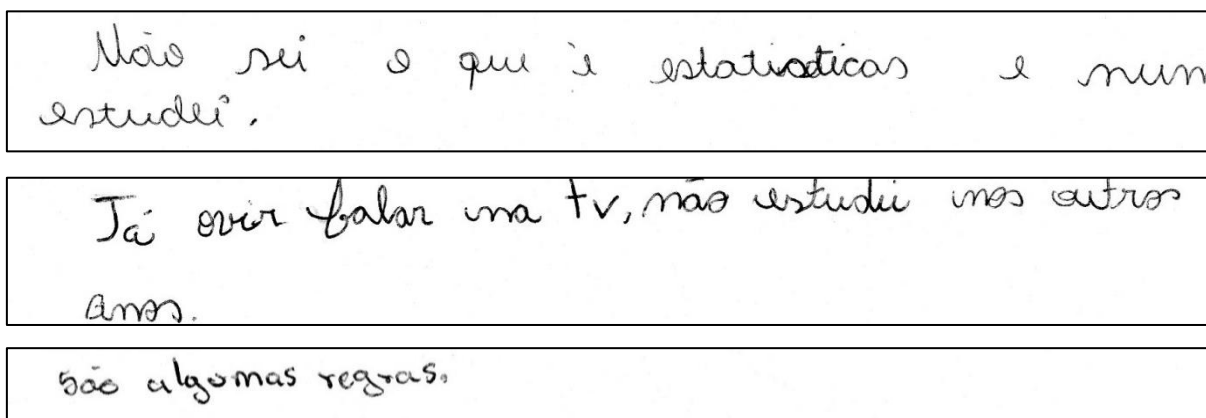 Não sei o que è estatisticas e nun
estudei.
Já ovir falar na tv, não estudei nos outros
anos.
são algumas regras.